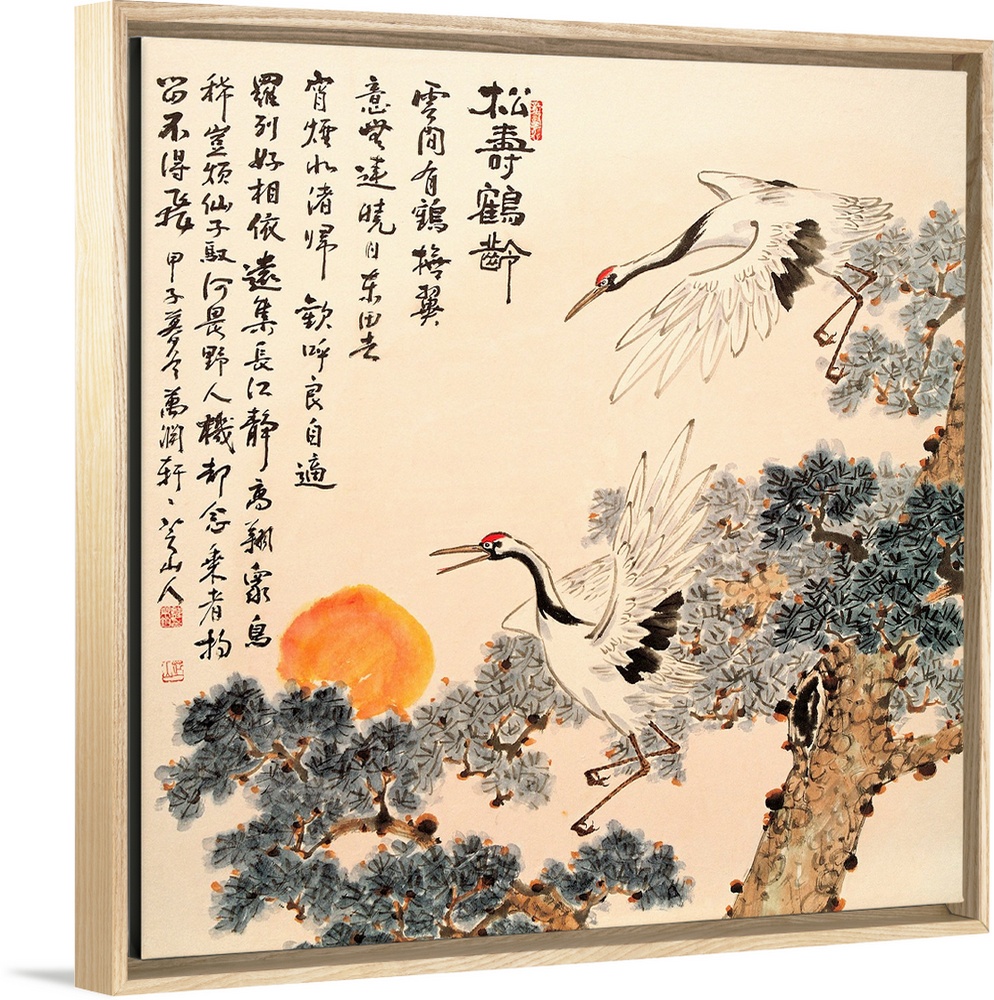 松壽鶴齡
雲間有鶴摻翼
意無違曉日東田去
宵煙水渚歸 歡呼良自適
羅列好相依 遠集長江靜高翔眾鳥
稀豈煩仙子馭何畏野人機却念乘者拘
留不得飛 甲子暮冬萬潤軒 山人